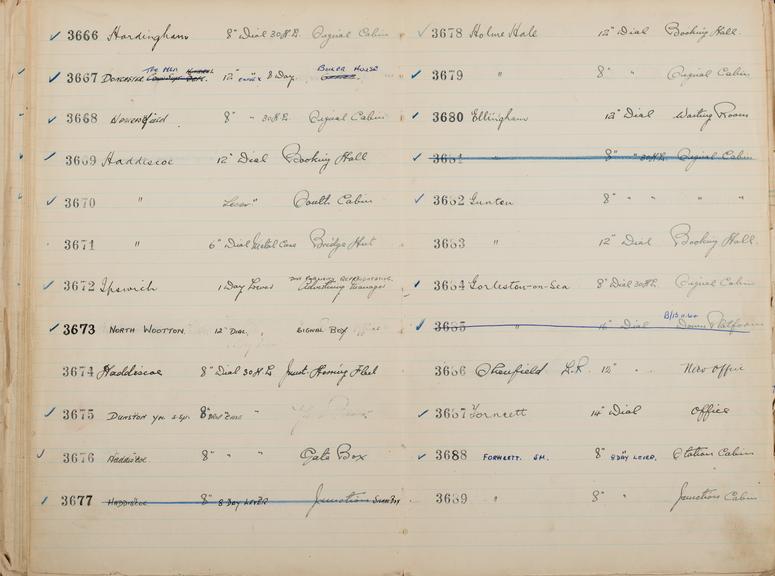 3666 Hardingham 8" Dial 30 H.R. Signal Cabin
3667 Doncaster The Men 12" 8 Day. Boiler House
3668 8" " 30 H.R. Signal Cabin
3669 Haddiscoe 12" Dial Booking Hall
3670 " Lever" South Cabin
3671 " 6" Dial Metal Case Bridge Hut
3672 Ipswich 1 Day Lever Advertising Manager
3673 NORTH WOOTTON. 12" DIAL. SIGNAL BOX
3674 Haddiscoe 8" Dial 30 H.R. Junct Herring Fleet
3675 DUNSTON 8" "
3676 HADDISCOE. 8" " " Gate Box
3677 HADDISCOE 8" 8 DAY LEVER Junction
3678 Holme Hale 12" Dial Booking Hall.
3679 " 8" " Signal Cabin
3680 Ellingham 12" Dial Waiting Room
3681 " 8" " 30 H.R. Signal Cabin
3682 Gunton 8" " " "
3683 " 12" Dial Booking Hall.
3684 Gorleston-on-Sea 8" Dial 30 H.R. Signal Cabin
3685 " Dial Down Platform
3686 Shenfield 12" " New Office
3687 Forncett 14" Dial Office
3688 FORNCETT. SM. 8" 8 DAY LEVER. Station Cabin
3689 " 8" " Junction Cabin